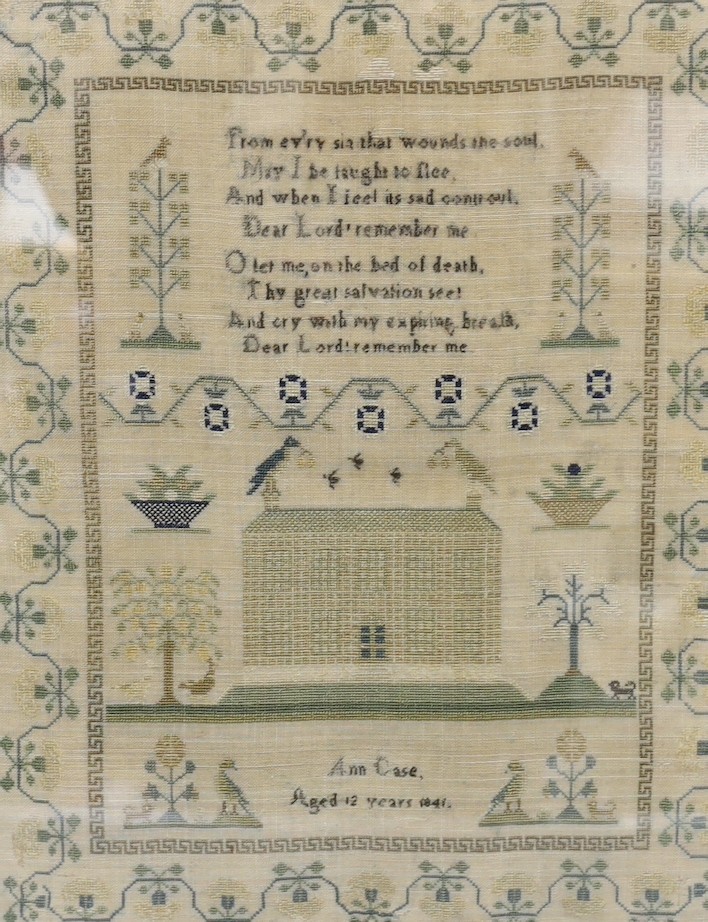 From ev'ry sin that wounds the soul,
May I be taught to flee,
And when I feel its sad controul,
Dear Lord! remember me.
O let me, on the bed of death,
Thy great salvation see!
And cry with my expiring breath,
Dear Lord! remember me.
Ann Case,
Aged 12 years 1841.